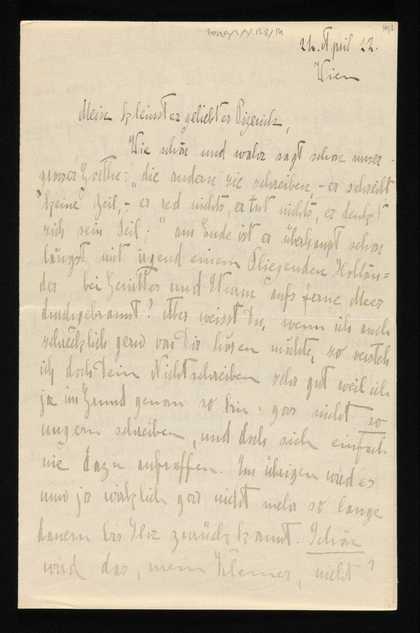 24. April 22.
Wien
Mein kleinster geliebter
Wie schön und wahr sagt schon unser
grosser Goethe: „die andern sie schreiben, - er schreibt
keine Zeil, - er red nichts, er tut nichts, er denkt
sich sein Teil;" am Ende ist er überhaupt schon
längst mit irgend einem Fliegenden Hollän=
der bei Gewitter und Sturm aufs ferne Meer
durchgebrannt? Aber weisst Du, wenn ich auch
schrecklich gern von Dir hören möchte, so versteh
ich doch Dein Nichtschreiben sehr gut weil ich
ja im Grund genau so bin: gar nicht so
ungern schreiben, und doch sich einfach
nie dazu aufraffen. Im übrigen wird es
nun ja wirklich gar nicht mehr so lange
dauern bis Ihr zurück kommt. Schön
wird das, mein Kleiner, nicht?